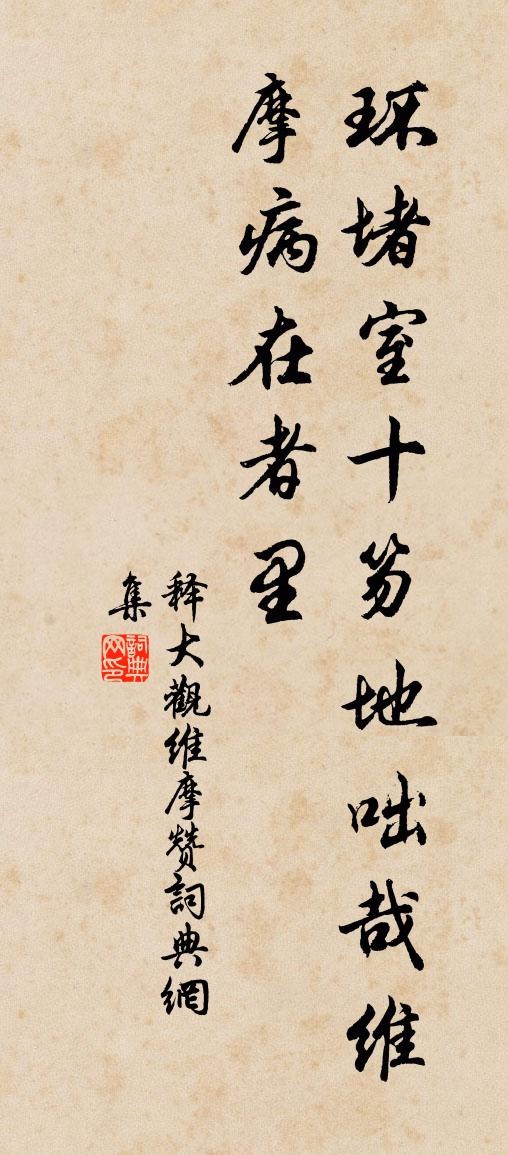 环堵室十笏地咄哉维
摩病在者里
释大觀维摩赞詞典網
集
詞典
网印